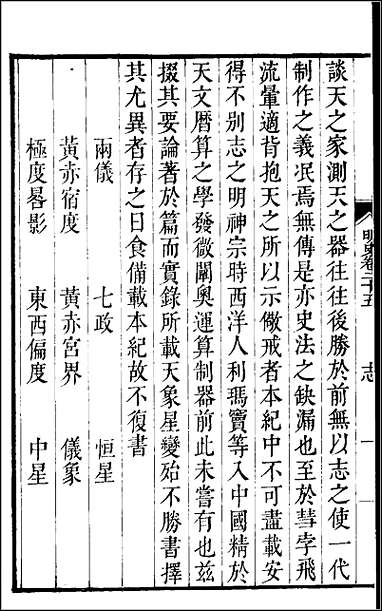 談天之家測天之器往往後勝於前無以志之使一代
制作之義冺焉無傳是亦史法之缺漏也至於彗孛飛
流暈適背抱天之所以示儆戒者本紀中不可盡載安
得不别志之明神宗時西洋人利瑪竇等入中國精於
天文曆算之學發微闡奥運算制器前此未嘗有也兹
掇其要論著於篇而實錄所載天象星變殆不勝書擇
其尤異者存之日食備載本紀故不復書
兩儀 七政 恒星
黃赤宿度 黃赤宮界 儀象
極度晷影 東西偏度 中星
明史卷二十五 志 一